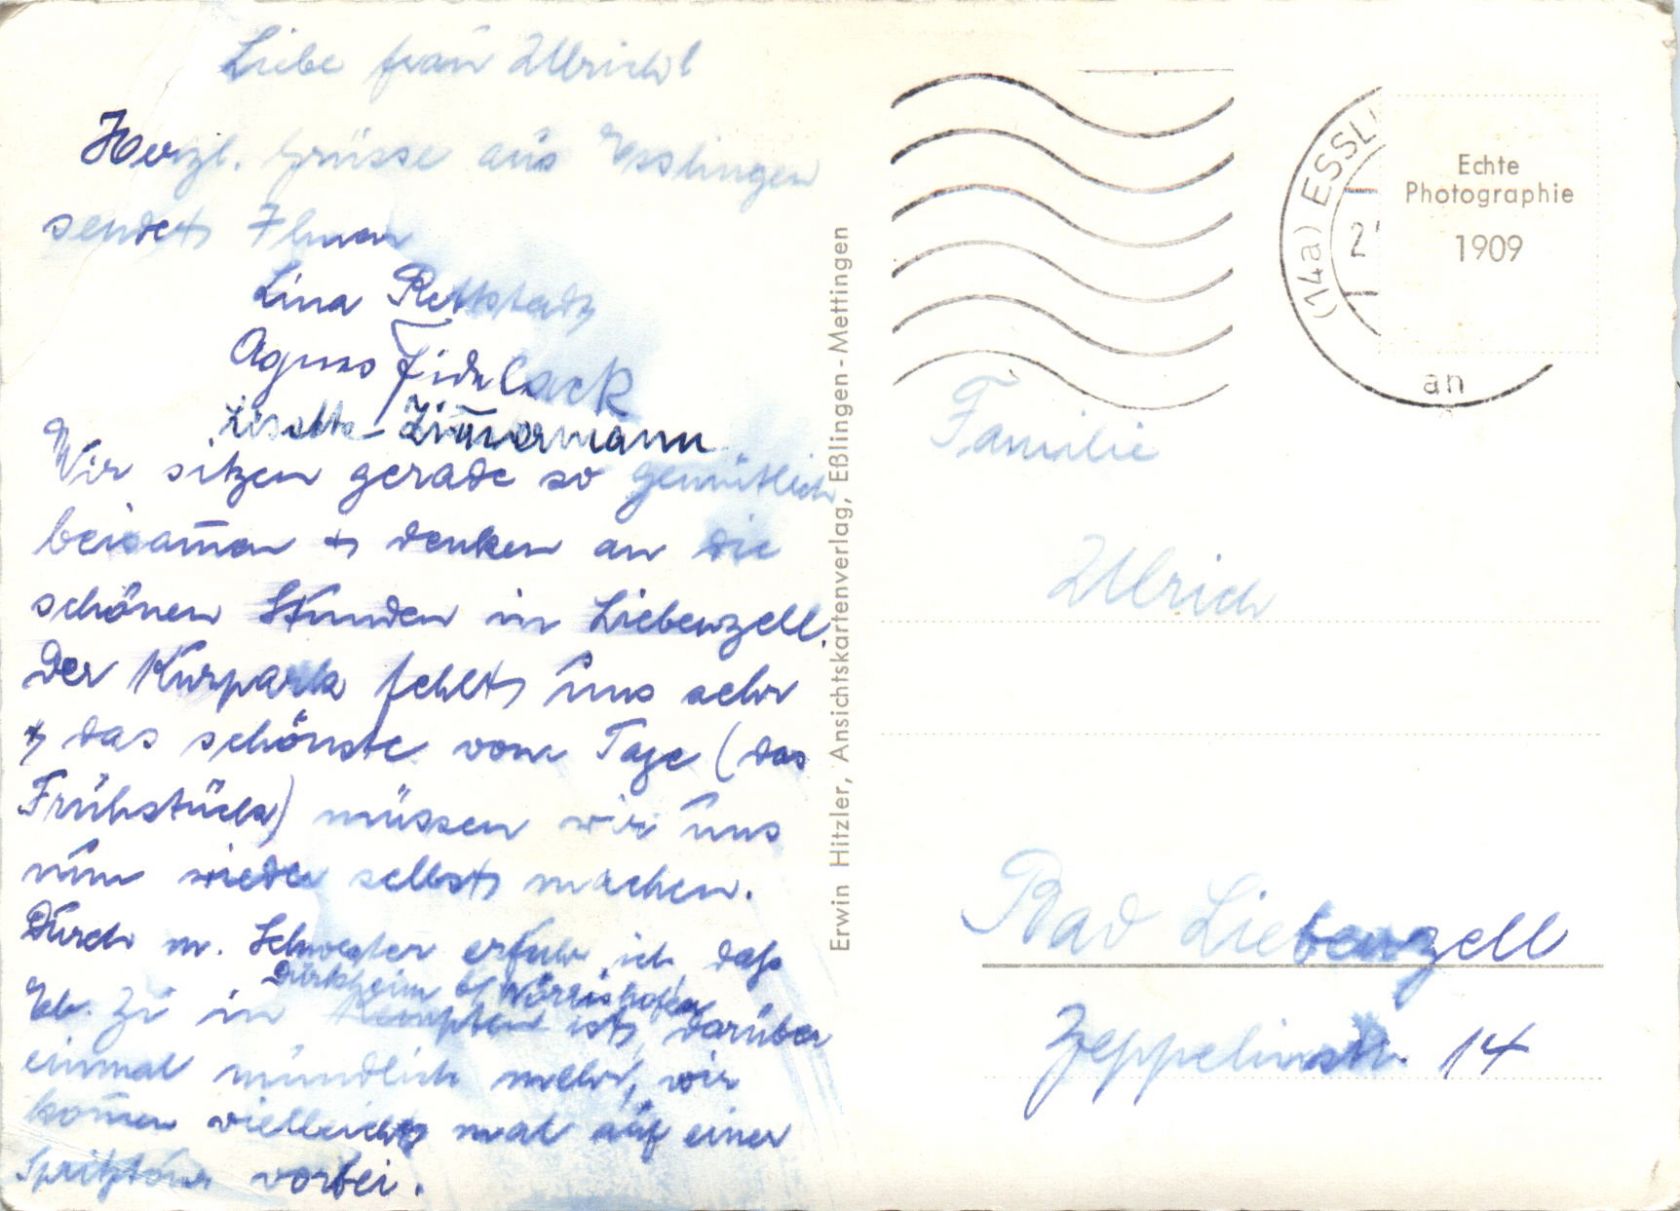 Liebe Frau Ullrich!
Herzl. Grüsse aus Esslingen
sendet Ihnen
Lina
Agnes
Liselotte Zimmermann
Wir sitzen gerade so gemütlich
beisam̅en & denken an die
schönen Stunden in Liebenzell.
Der Kurpark fehlt uns sehr
& das schönste vom Tage (das
Frühstück) müssen wir uns
nun wieder selbst machen.
Durch m. Schwester erfuhr ich, daß
Dürkheim b/ Wörrishofen
in Kempten ist, darüber
einmal mündlich mehr, wir
kom̅en vielleicht mal auf einer
Spritztour vorbei.
Erwin Hitzler, Ansichtskartenverlag, Eßlingen-Mettingen
(14a) ESSL
2
an
Echte
Photographie
1909
Familie
Ullrich
Bad Liebenzell
Zeppelinstr. 14